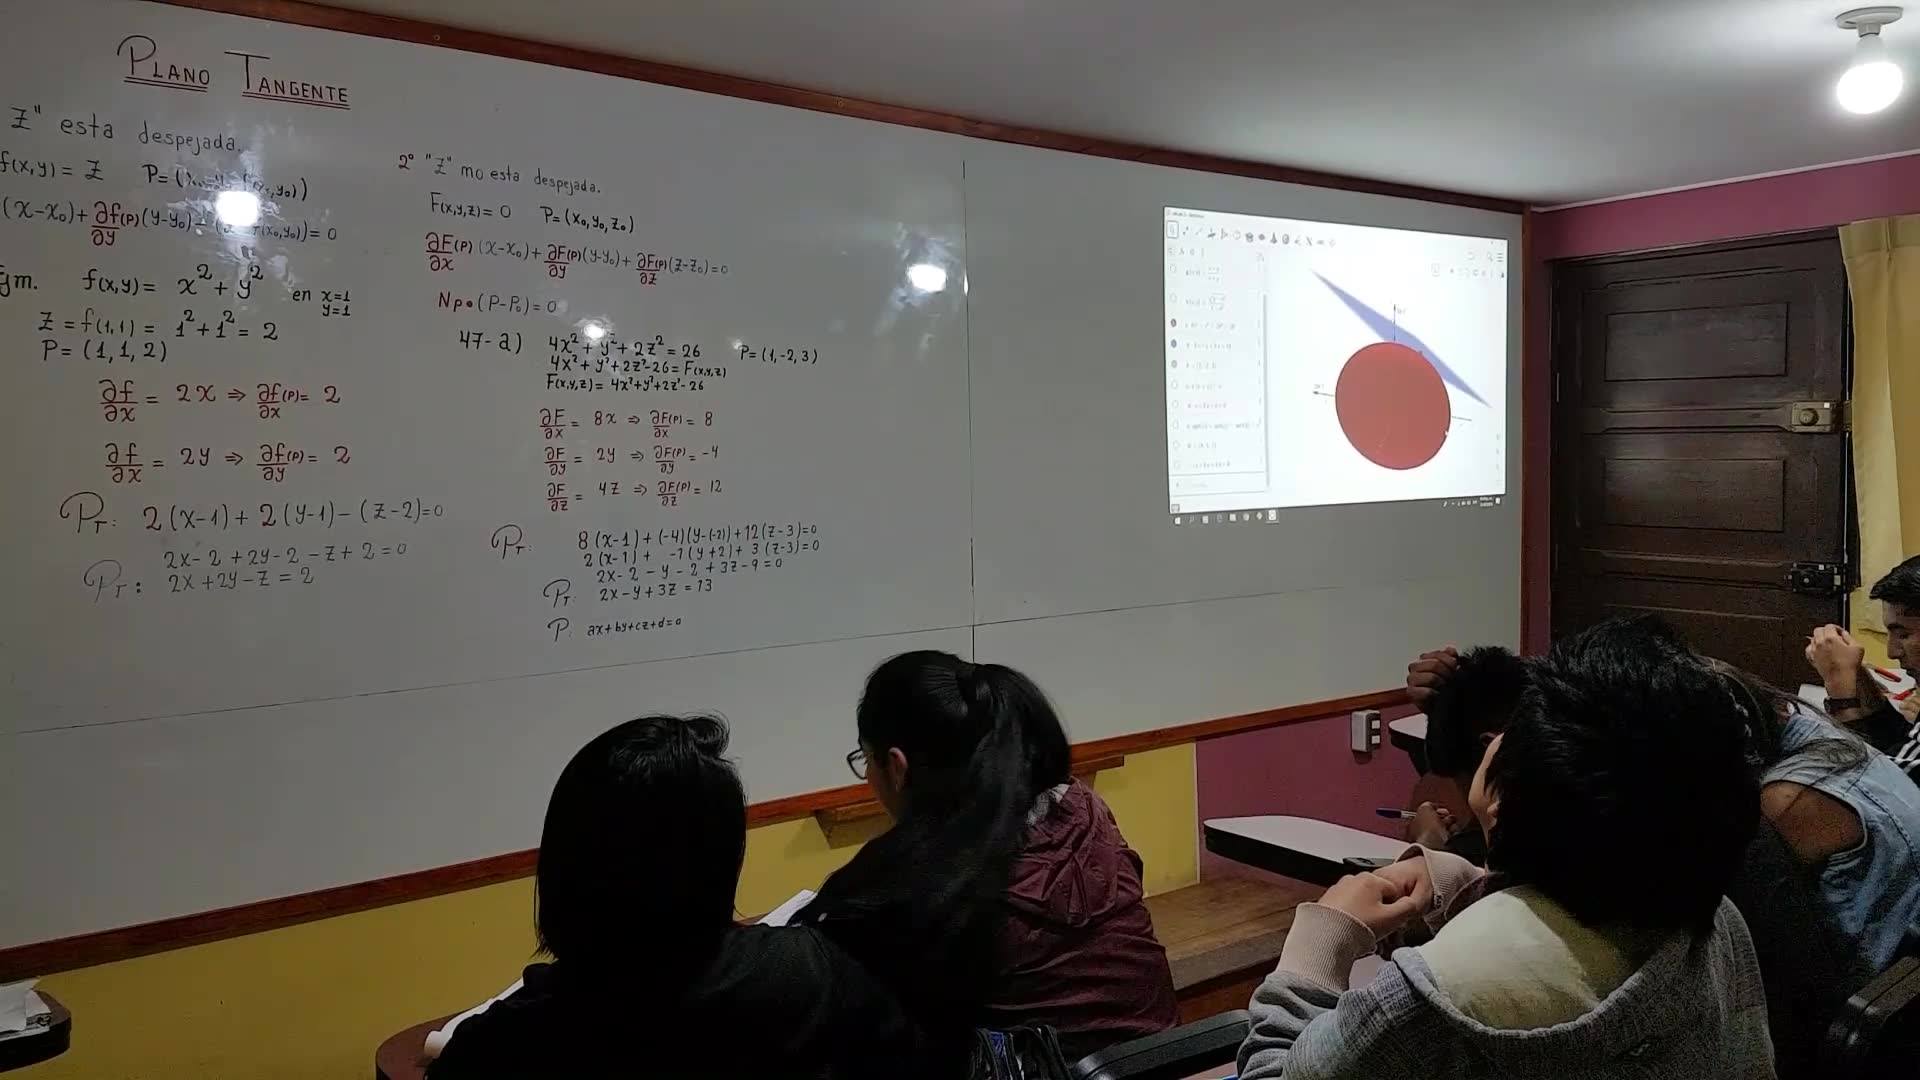 PLANO TANGENTE
Z" esta despejada.
f(x,y) = Z P=(
(x-x₀)+ ∂f(P)/∂y (y-y₀)- = 0
f(x,y) = x² + y² en x=1 y=1
Z = f(1,1) = 1² + 1² = 2
P = (1, 1, 2)
∂f/∂x = 2x ⇒ ∂f(P)/∂x = 2
∂f/∂x = 2y ⇒ ∂f(P)/∂y = 2
P_T: 2(x-1) + 2(y-1) - (z-2)=0
2x - 2 + 2y - 2 - z + 2 = 0
P_T: 2x + 2y - z = 2
2° "Z" mo esta despejada.
F(x,y,z) = 0 P = (x₀, y₀, z₀)
∂F(P)/∂x (x-x₀) + ∂F(P)/∂y (y-y₀) + ∂F(P)/∂z (z-z₀) = 0
Np•(P-P₀) = 0
47- a) 4x² + y² + 2z² = 26 P = (1, -2, 3)
4x² + y² + 2z² - 26 = F(x,y,z)
F(x,y,z) = 4x² + y² + 2z² - 26
∂F/∂x = 8x ⇒ ∂F(P)/∂x = 8
∂F/∂y = 2y ⇒ ∂F(P)/∂y = -4
∂F/∂z = 4z ⇒ ∂F(P)/∂z = 12
P_T: 8(x-1) + (-4)(y-(-2)) + 12(z-3)=0
2(x-1) + -1(y+2) + 3(z-3)=0
2x - 2 - y - 2 + 3z - 9 = 0
P_T: 2x - y + 3z = 13
P: ax+by+cz+d=0